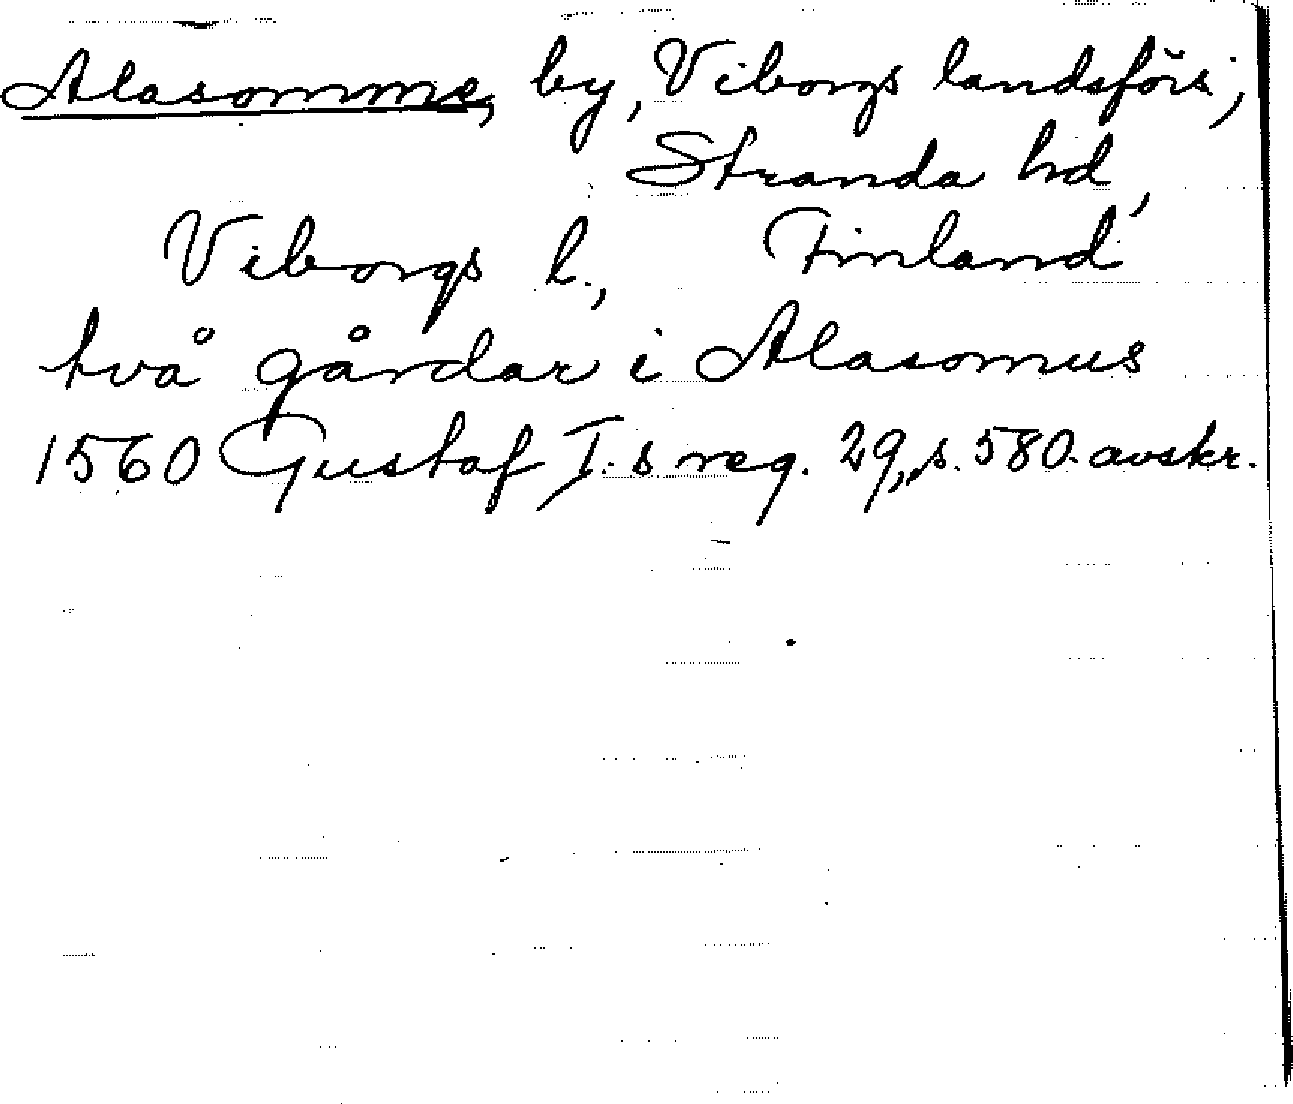 Alasomme, by, Viborgs landsförs.,
Stranda hd,
Viborgs l., Finland
två gårdar i Alasomus
1560 Gustaf I.s reg. 29, s. 580. avskr.